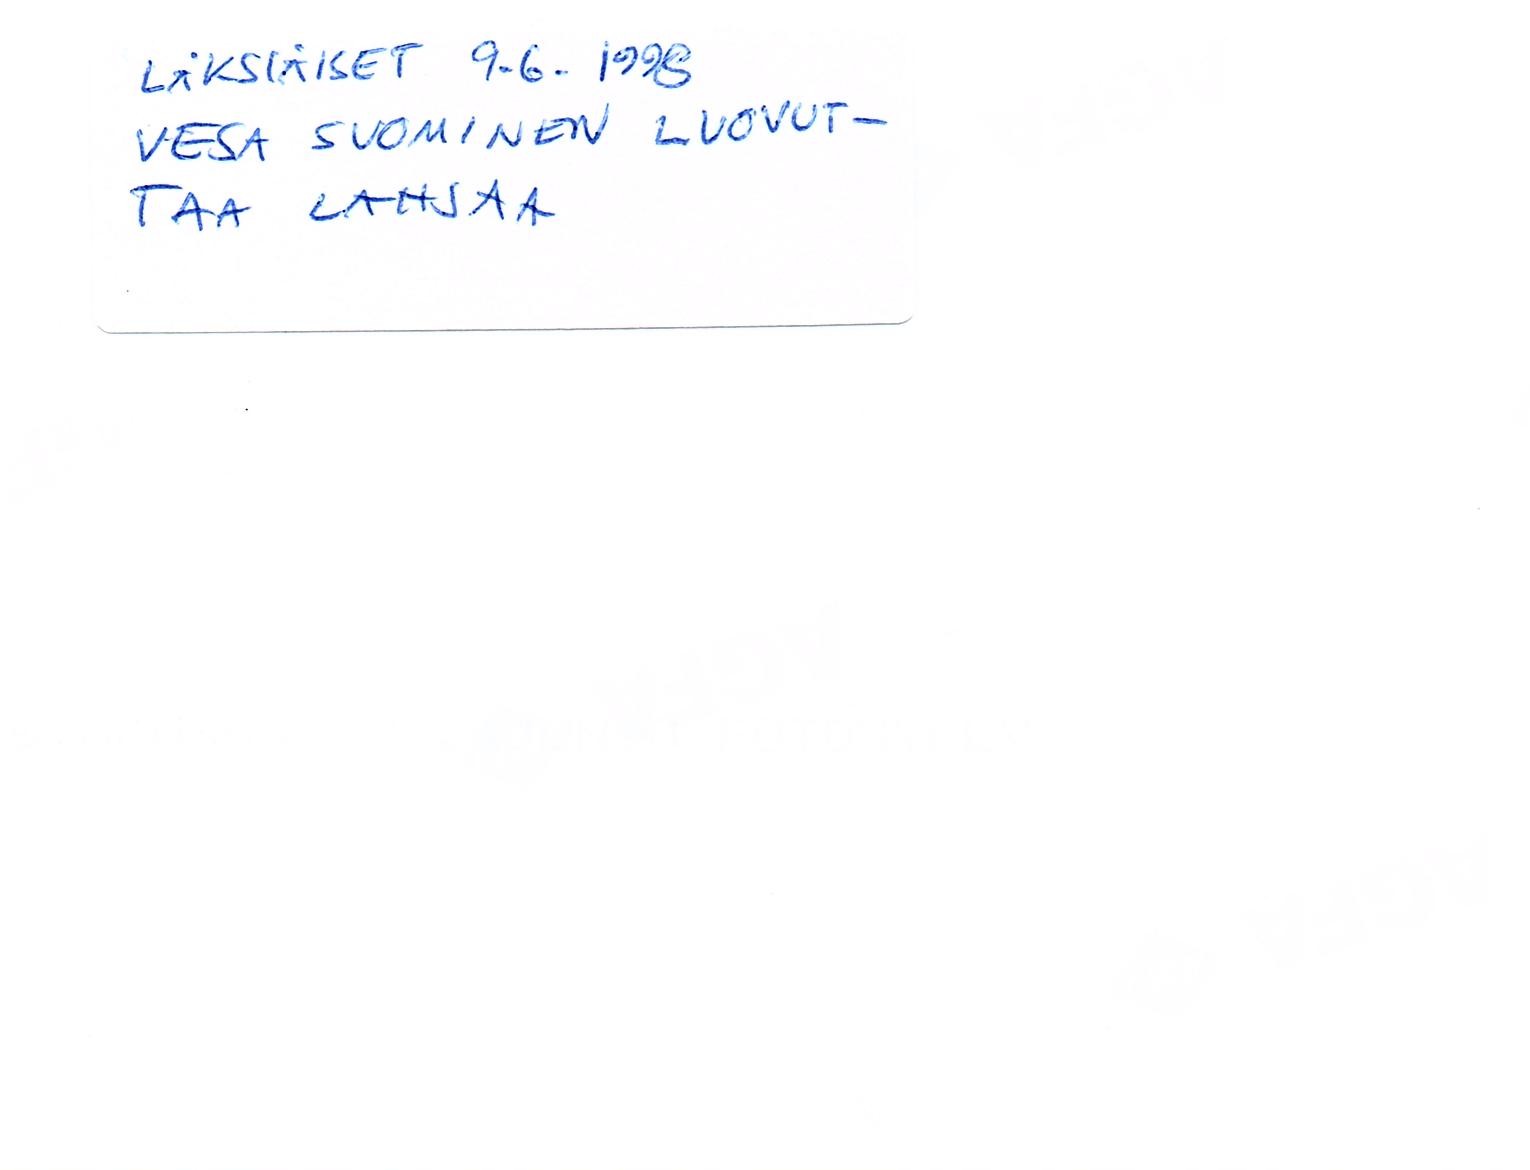 LÄKSIÄISET 9.6. 1998
VESA SUOMINEN LUOVUT-
TAA LAHSAA
AGFA
AGFA